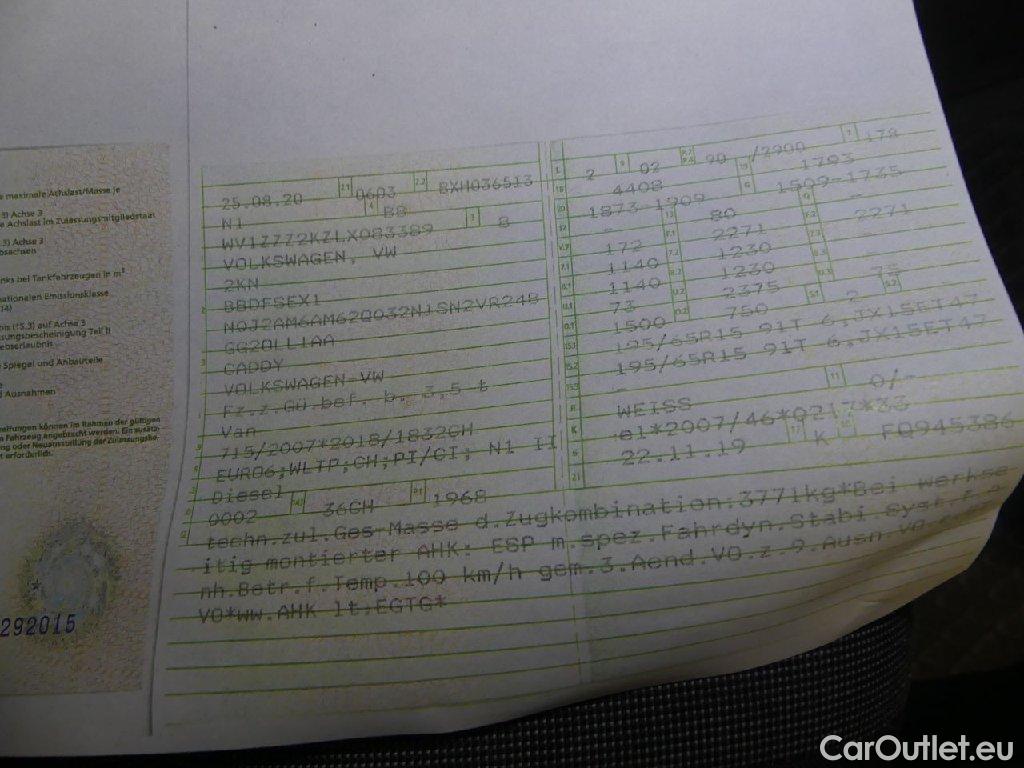 e maximale Achslast/Masse je
3) Achse 3
e Achslast im Zulassungsmitgliedstaat
.3) Achse 3
bsachsen
nks bei Tankfahrzeugen in m³
ationalen Emissionsklasse
14)
nis (15.3) auf Achse 3
sungsbescheinigung Teil II
eberlaubnis
Spiegel und Anbauteile
d Ausnahmen
292015
25.08.20 2.1 0603 2.2 BXH036513
N1 BB
WV1ZZZ2KZLX083389 3 8
VOLKSWAGEN, VW
2KN
BBDFSEX1
CADDY
VOLKSWAGEN-VW
Fz.z.Gü.bef. b. 3,5 t
Van
715/2007*2018/1832CH
EURO6;WLTP;CH;PI/CI; N1 II
Diesel
0002 36CH 1968
2 02 90 /2900 178
4408 1793
1873-1909 1509-1735
- 80 -
172 2271 2271
1140 1230 -
1140 1230 -
73 2375 73
1500 750 2
195/65R15 91T 6,JX15ET47
195/65R15 91T 6,JX15ET47
-
WEISS 0/-
e1*2007/46*0217*33
22.11.19 K FQ945386
techn.zul.Ges-Masse d.Zugkombination:3771kg*Bei werkse
itig montierter AHK: ESP m.spez.Fahrdyn.Stabi.Syst.f.
nh.Betr.f.Temp.100 km/h gem.3.Aend.VO.z.9.Ausn.VO.
VO*ww.AHK lt.EGTG*
CarOutlet.eu